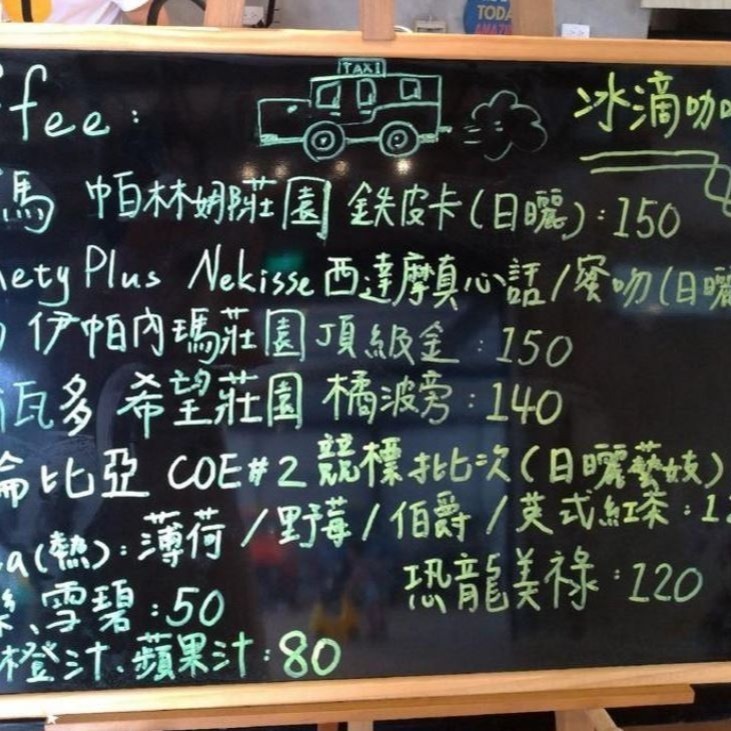 TODAY
TAXI
ffee:
冰滴咖
馬 帕林姆莊園 鉄皮卡(日曬):150
ety Plus Nekisse 西達摩真心話/蜜吻(日曬
伊帕內瑪莊園 頂級金:150
瓦多 希望莊園 橘波旁:140
倫比亞 COE#2 競標批次(日曬藝妓)
a(熱):薄荷/野莓/伯爵/英式紅茶:12
恐龍美祿:120
雪碧:50
橙汁、蘋果汁:80